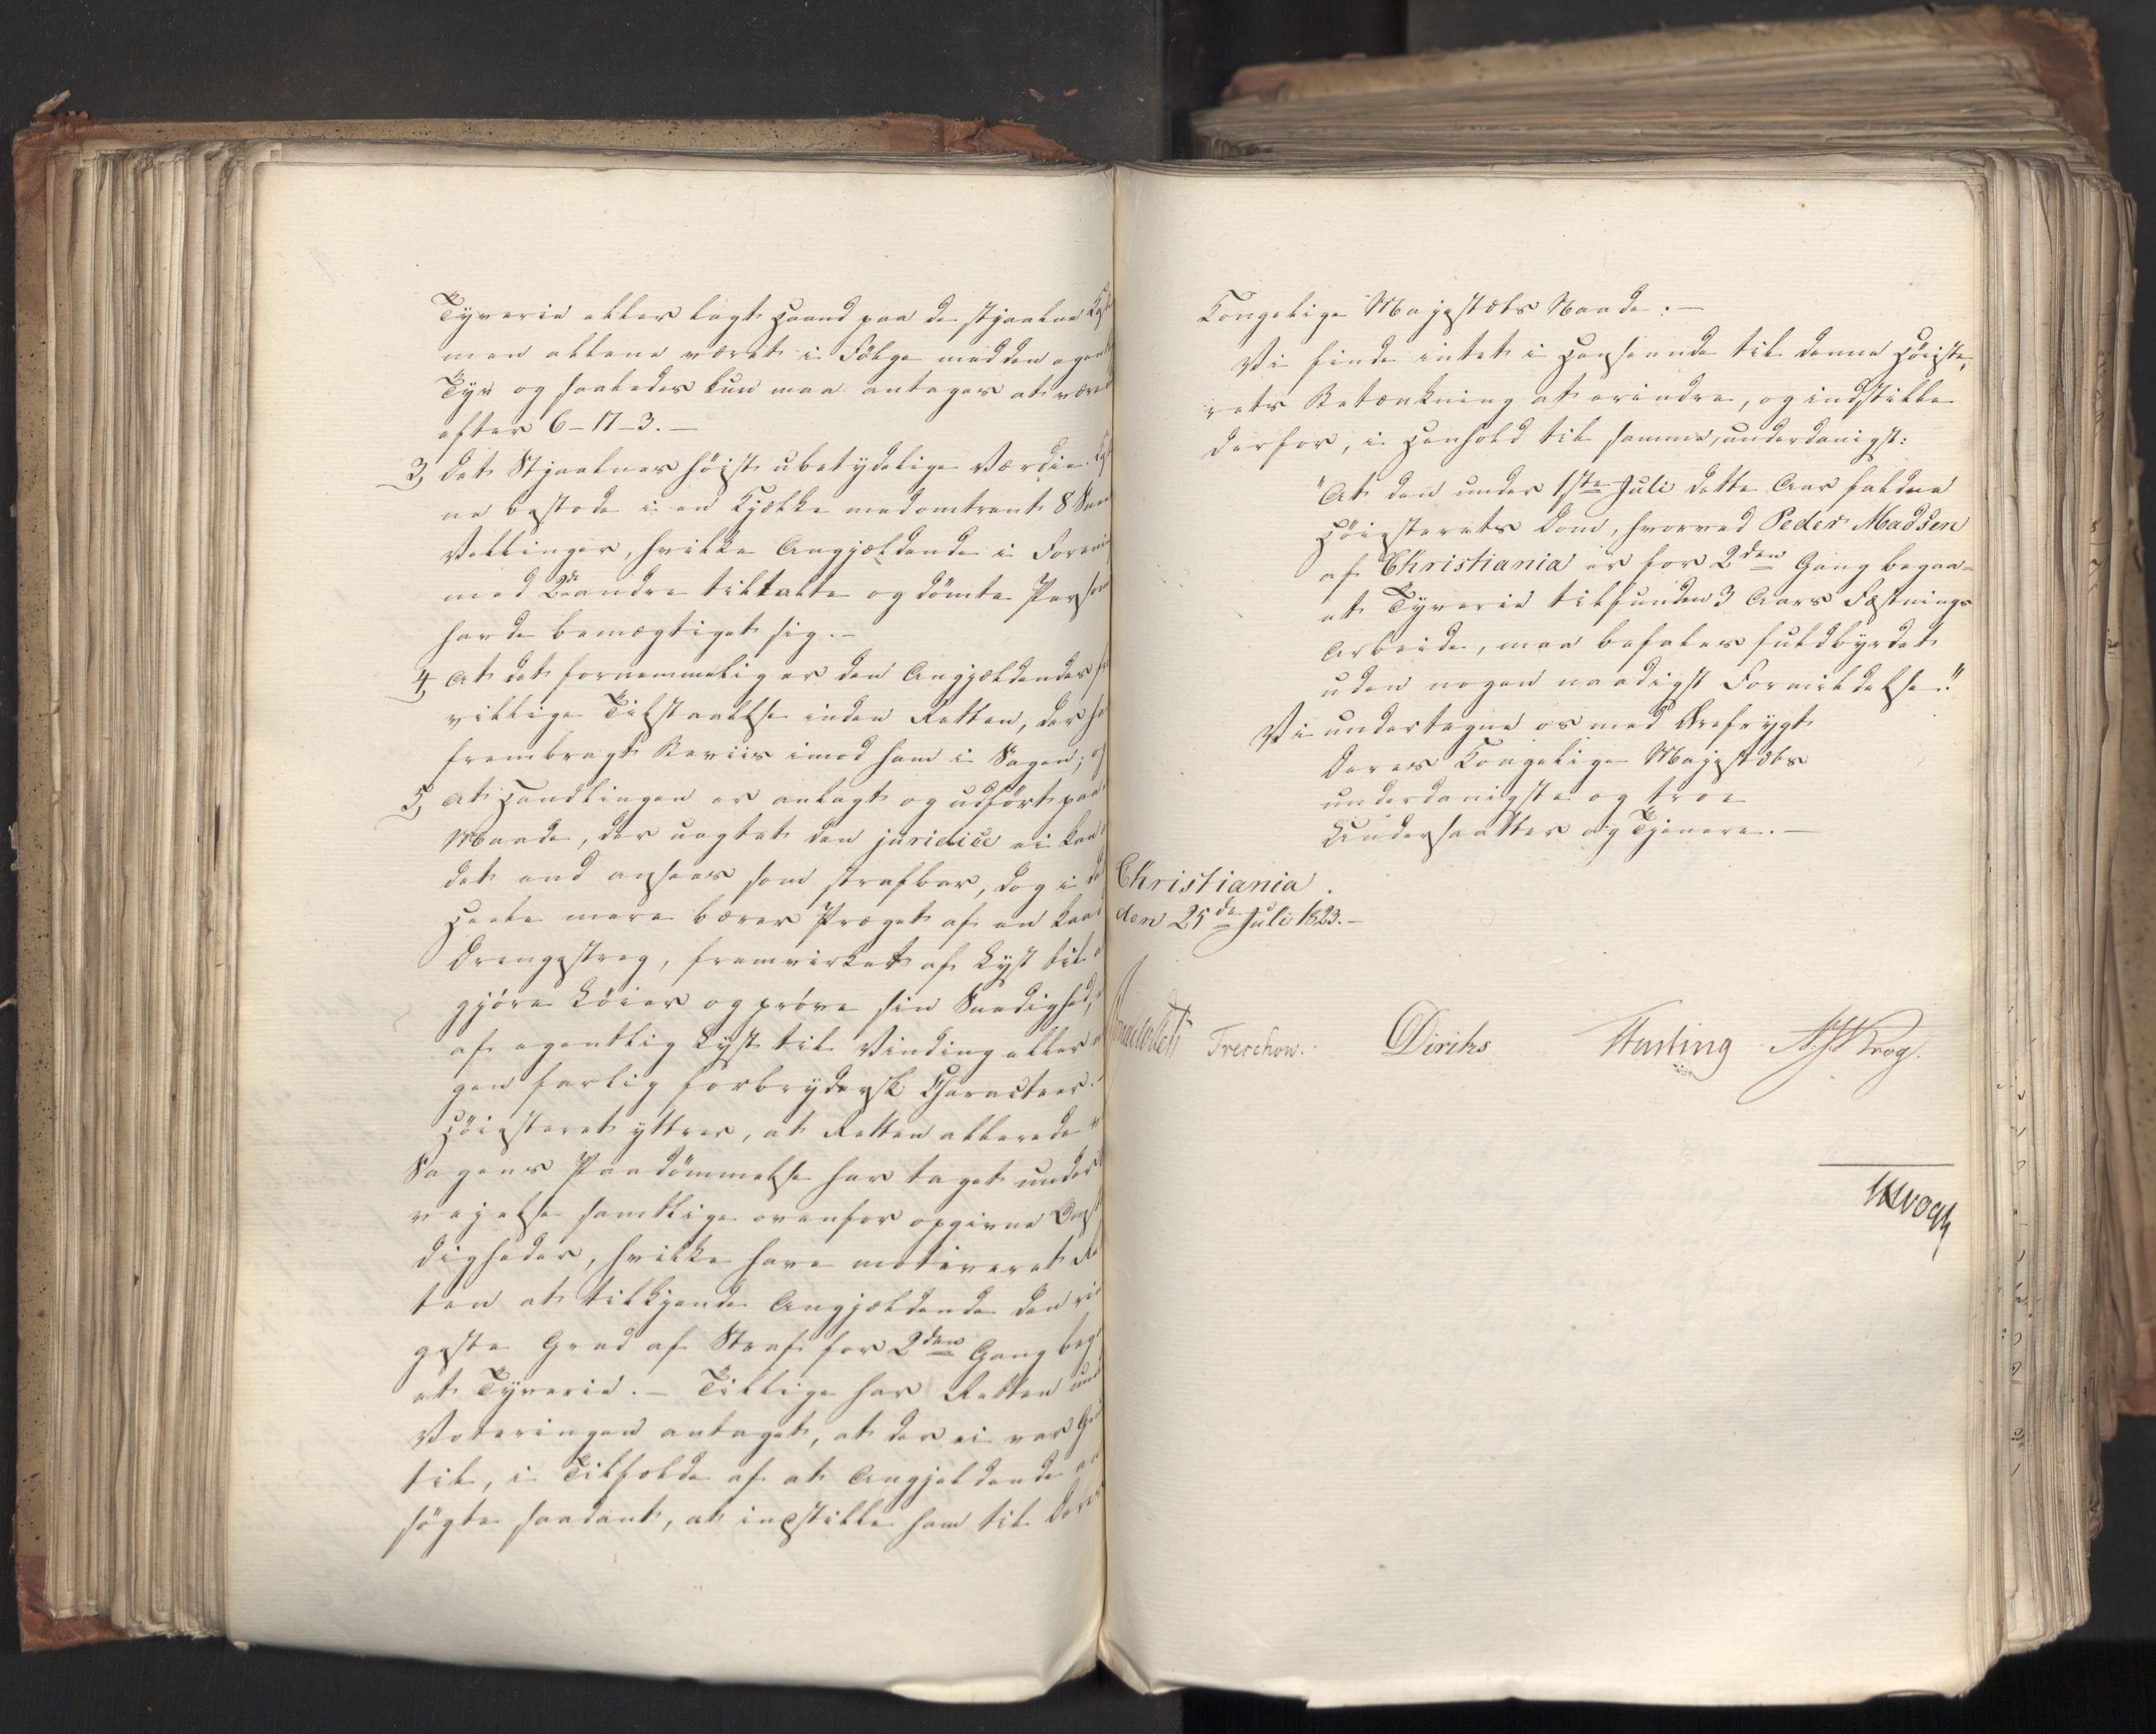 Tyverie eller lagt Haand paa de stjaalne
men allene været i Følge med den
Tyv og saaledes kun maa antages at
efter 6-17-3.-
3, Det Stjaalnes høist ubetydelige Værdie.
ne bestode i en Kjække med omtrent 8
Vellinger, hvilke Angjældende i
med 2de andre tiltalte og dømte
havde bemægtiget sig.-
4, At det fornemmelig er den Angjældendes
villige Tilstaaelse inden Retten, der
frembragt Beviis imod ham i Sagen;
5, At Handlingen er anlagt og udført paa
Maade, der uagtet den juridice ei kan
det end ansees som strafbar, dog i
Hele mere bærer Præget af en
Drengestreg, fremvirket af Lyst til
gjøre Løier og prøve sin Snedighed,
af egentlig Lyst til Vinding eller
gen farlig forbrydersk Characteer.
Høiesteret yttrer, at Retten allerede
Sagens Paadømmelse har taget under
veielse samtlige ovenfor opgivne
digheder, hvilke have motiveret
ten at tilkjende Angjældende den
geste Grad af Straf for 2den Gang
et Tyverie.- Tillige har Retten
Voteringen antaget, at der ei var
til, i Tilfælde af at Angjældende
søgte saadant, at indstille ham til
Kongelige Majestæts Naade.-
Vi finde intet i Henseende til denne Høieste,
rets Betænkning at erindre, og indstille
derfor, i Henhold til samme, underdanigst:
"At den under 1ste Juli dette Aar faldne
Høiesterets Dom, hvorved Peder Madsen
af Christiania er for 2den Gang begaa-
et Tyverie tilfunden 3 Aars Fæstnings
Arbeide, maa befales fuldbyrdet
uden nogen naadigst Formildelse."
Vi undertegne os med Ærefrygt
Deres Kongelige Majestæts
underdanigste og troe
Undersaatter og Tjenere.-
Christiania
den 25de Juli 1823.-
Treschow. Diriks Krog.